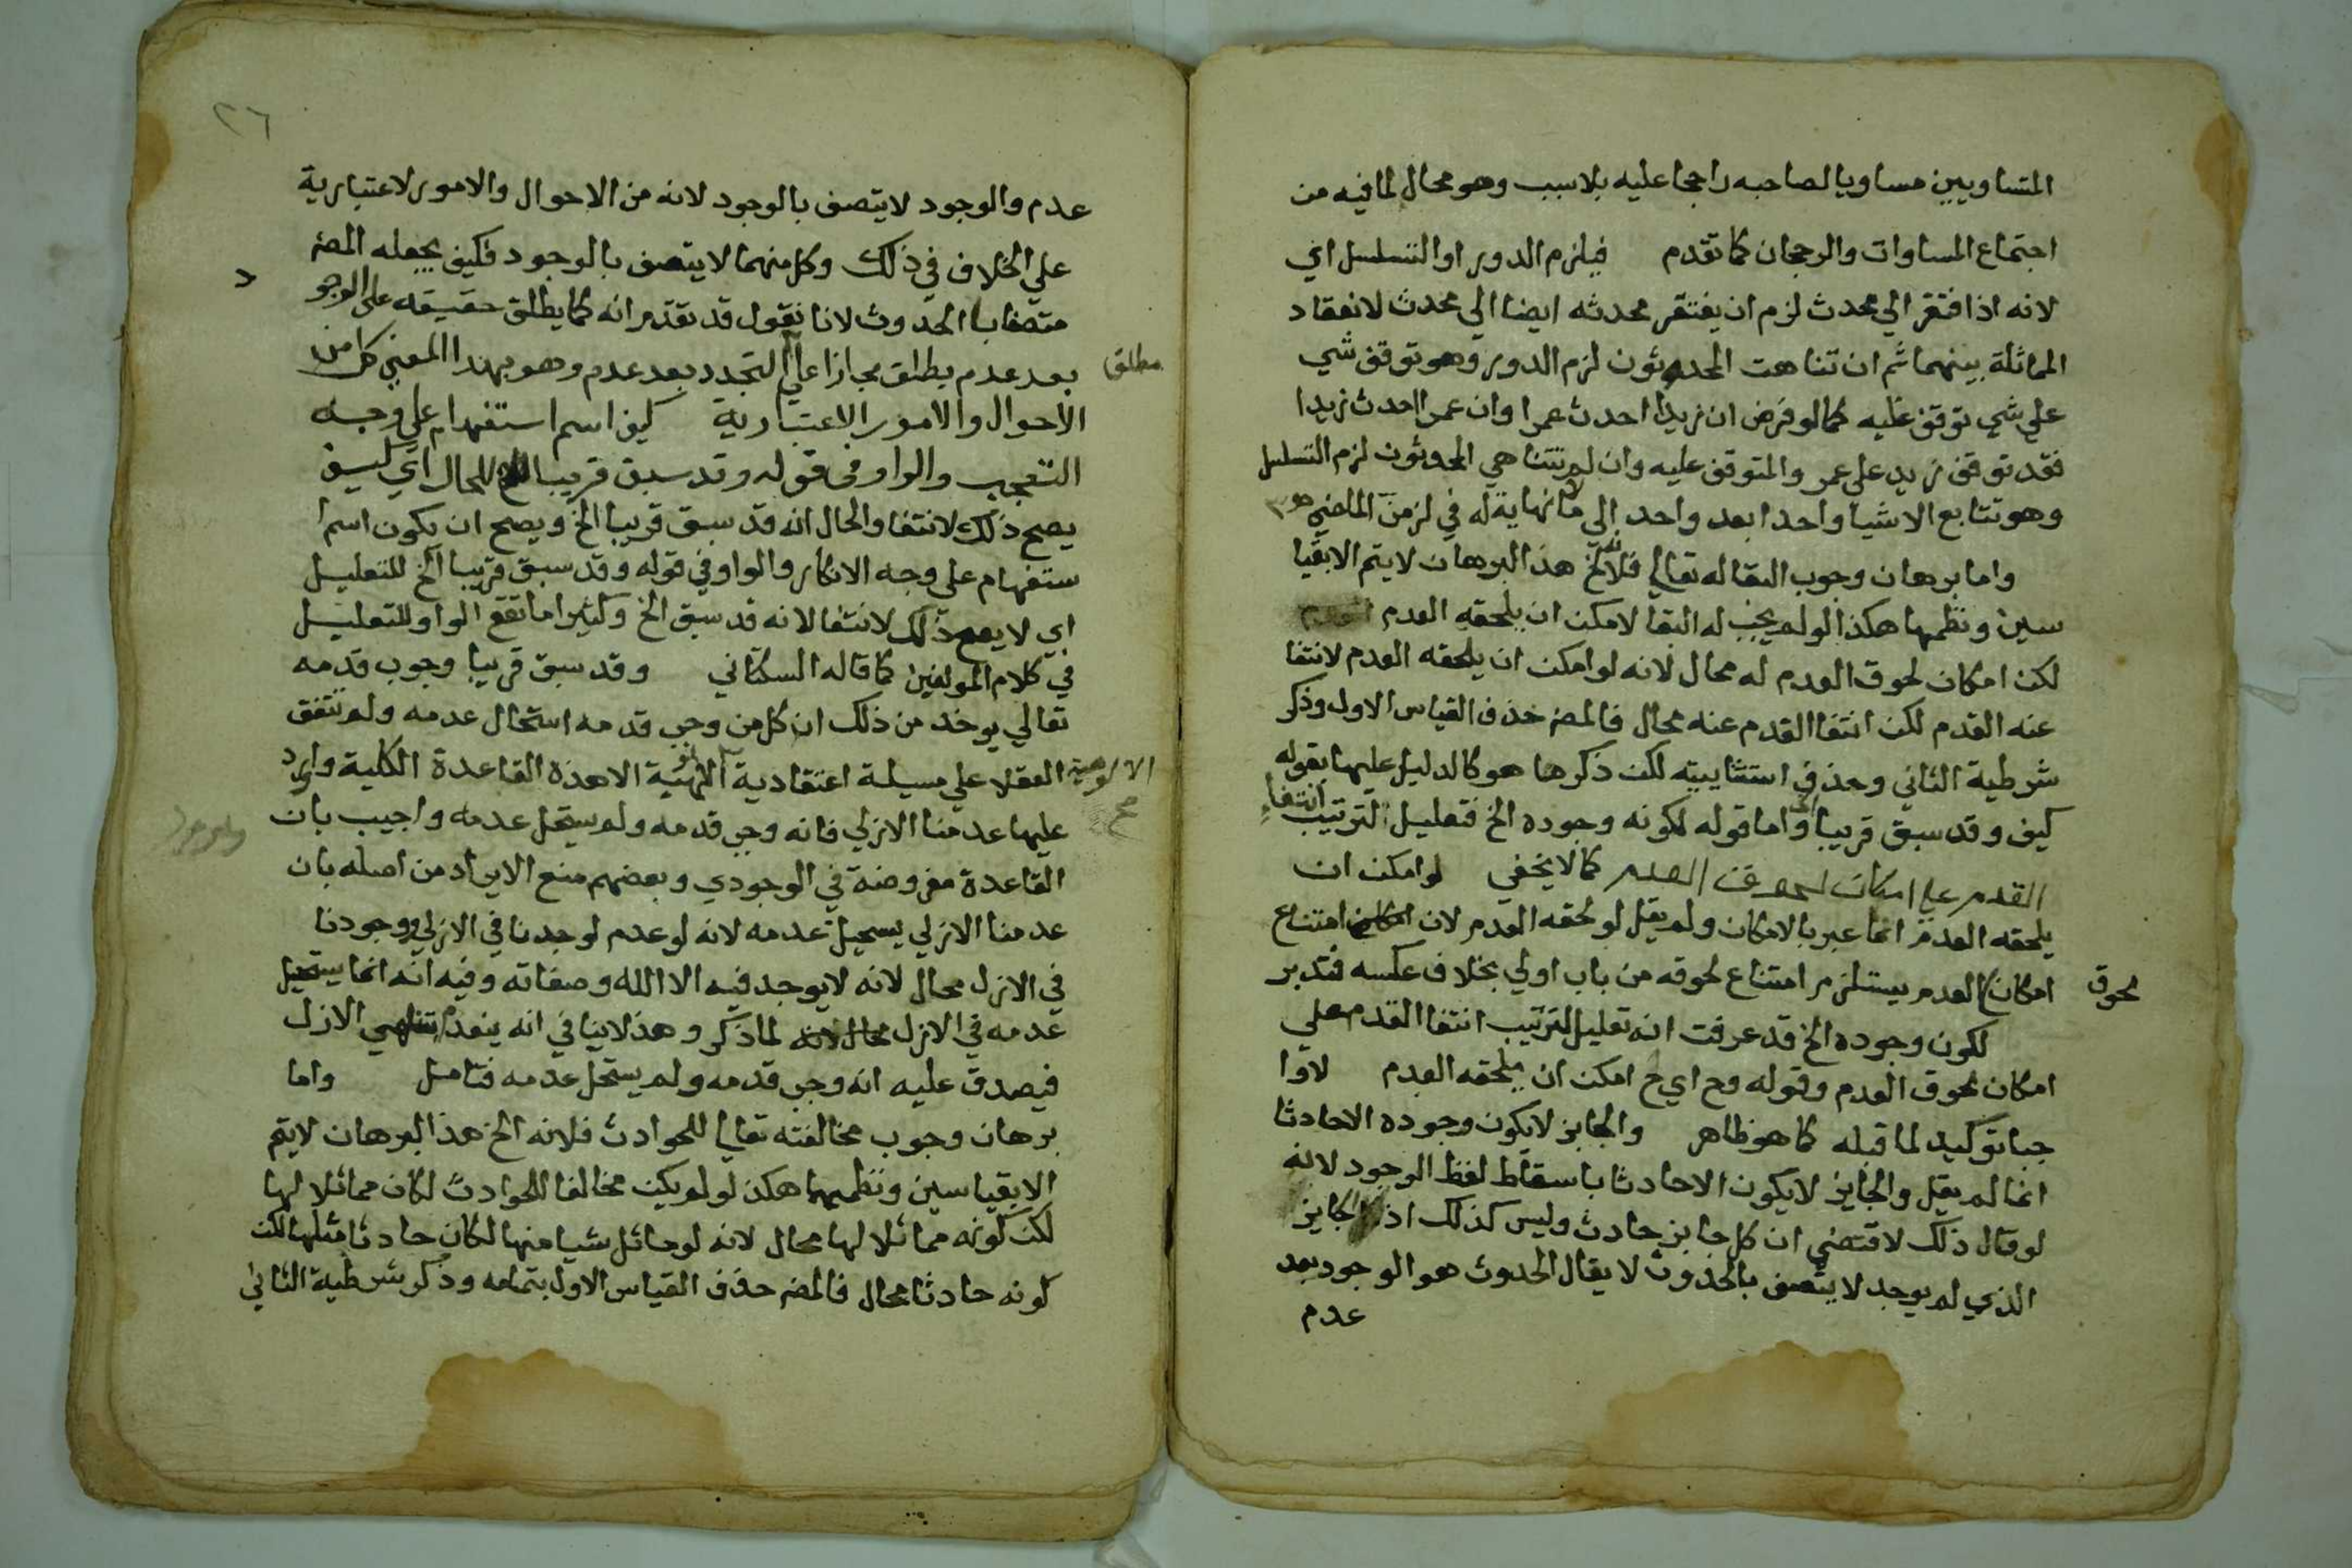 المتساويين مساويا لصاحبه راجحا عليه بلا سبب وهو محال لما فيه من
اجتماع المساوات والرجحان كما تقدم فيلزم الدور او التسلسل اي
لانه اذا افتقر الي محدث لزم ان يفتقر محدثه ايضا الي محدث لانعقاد
المماثلة بينهما ثم ان تناهت المحدثون لزم الدور وهو توقف شي
علي شي توقف عليه كما لو فرض ان زيدا احدث عمرا وان عمرا احدث زيدا
فقد توقف زيد علي عمر والمتوقف عليه وان لم تتناهي المحدثون لزم التسلسل
وهو تتابع الاشيا واحدا بعد واحد الي ما لا نهاية له في لزمن الماضي
واما برهان وجوب البقا له تعالي فلانه الخ هذا البرهان لا يتم الا بقيا
سين ونظمها هكذا لو لم يجب له البقا لامكن ان يلحقه العدم
لكن امكان لحوق العدم له محال لانه لو امكن ان يلحقه العدم لانتفا
عنه القدم لكن انتفا القدم عنه محال فالمص حذف القياس الاول وذكر
شرطية الثاني وحذف استثناييته لكن ذكرها هو كالدليل عليها بقوله
كيف وقد سبق قريبا الخ واما قوله لكونه وجوده الخ فتعليل لترتيب انتفاء
القدم علي امكان لحوق العدم كما لا يخفي لو امكن ان
يلحقه العدم انما عبر بالامكان ولم يقل لو لحقه العدم لان امتناع
امكان لحوق العدم يستلزم امتناع لحوقه من باب اولي بخلاف عكسه فتدبر
لكون وجوده الخ قد عرفت انه تعليل لترتيب انتفا القدم علي
امكان لحوق العدم وقوله وح اي ح امكن ان يلحقه العدم لا وا
جبا توكيد لما قبله كما هو ظاهر والجايز لا يكون وجوده الا حادثا
انما لم يقل والجايز لا يكون الا حادثا باسقاط لفظ الوجود لانه
لو قال ذلك لاقتضي ان كل جايز حادث وليس كذلك اذ الجايز
الذي لم يوجد لا يتصف بالحدوث لا يقال الحدوث هو الوجود بعد
عدم
٢٦
عدم والوجود لا يتصف بالوجود لانه من الاحوال والامور لاعتبارية
علي الخلاف في ذلك وكل منهما لا يتصف بالوجود فكيف يجعله المص
متصفا بالحدوث لانا نقول قد تقدم انه كما يطلق حقيقه علي الوجود
بعد عدم يطلق مجازا علي مطلق التجدد بعد عدم وهو بهذا المعني كل من
الاحوال والامور الاعتبارية كيف اسم استفهام علي وجه
التعجب والواو في قوله وقد سبق قريبا الخ للحال اي كيف
يصح ذلك لانتفا والحال انه قد سبق قريبا الخ ويصح ان يكون اسم ا
ستفهام علي وجه الانكار والواو في قوله وقد سبق قريبا الخ للتعليل
اي لا يصح ذلك لانتفا لانه قد سبق الخ وكثيرا ما تقع الواو للتعليل
في كلام المولفين كما قاله السكتاني وقد سبق قريبا وجوب قدمه
تعالي يوخذ من ذلك ان كل من وجب قدمه استحال عدمه ولم تتفق
العقلا علي مسيلة اعتقادية الالوهية الا هذة القاعدة الكلية واورد
عليها عدمنا الازلي فانه وجب قدمه ولم يستحل عدمه واجيب بان
القاعدة مفروضة في الوجودي وبعضهم منع الايراد من اصله بان
عدمنا الازلي يستحيل عدمه لانه لو عدم لوجدنا في الازل ووجودنا
في الازل محال لانه لا يوجد فيه الا الله وصفاته وفيه انه انما يستحيل
عدمه في الازل لما ذكر وهذا لا ينافي انه ينعدم الازل
فيصدق عليه انه وجب قدمه ولم يستحل عدمه فتامل واما
برهان وجوب مخالفته تعالي للحوادث فلانه الخ هذا البرهان لا يتم
الا بقياسين ونظمهما هكذا لو لم يكن مخالفا للحوادث لكان مماثلا لها
لكن كونه مماثلا لها محال لانه لو ماثل شيا منها لكان حادثا مثلها لكن
كونه حادثا محال فالمص حذف القياس الاول بتمامه وذكر شرطية الثاني